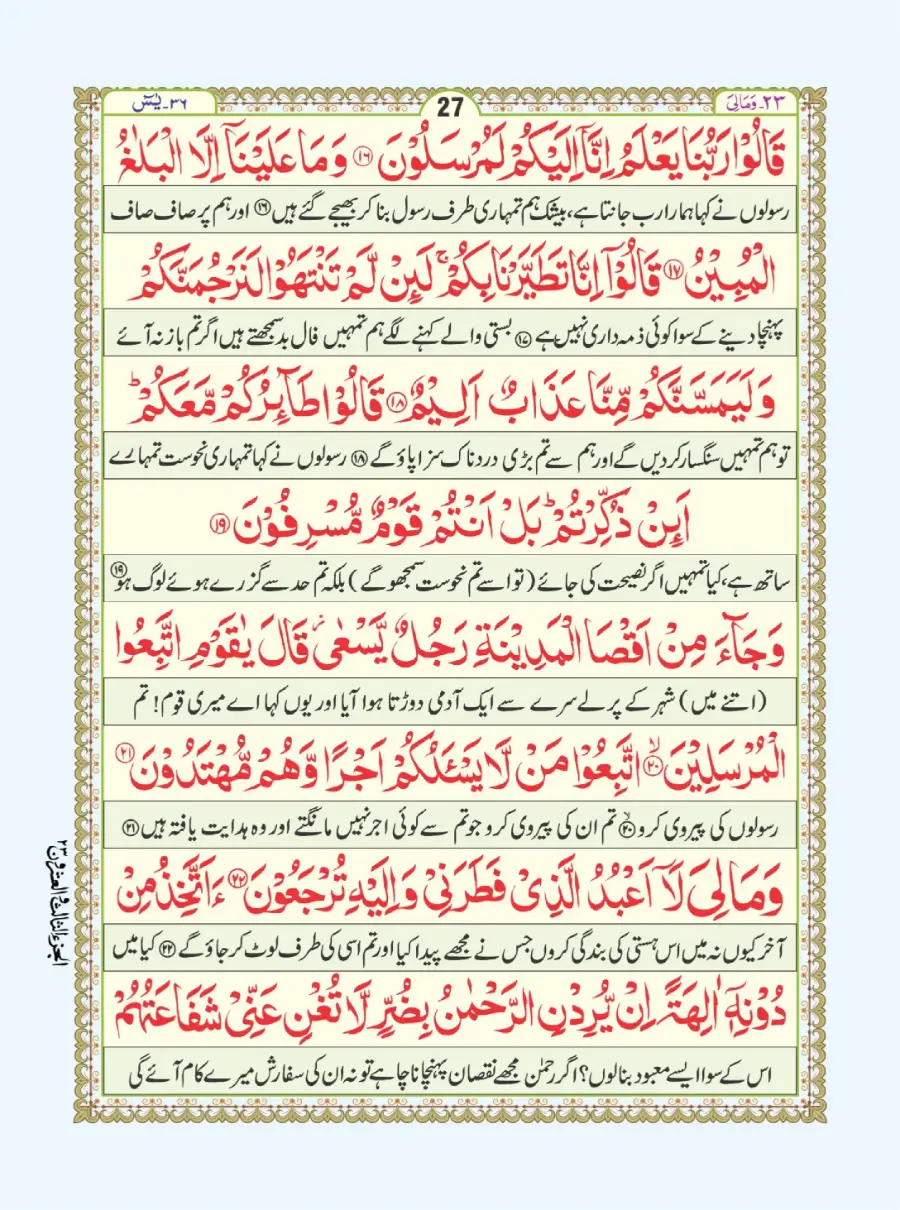 ٢٣ـ وَمَالِیَ
27
٣٦ـ یٰسٓ
قَالُوْا رَبُّنَا یَعْلَمُ اِنَّاۤ اِلَیْكُمْ لَمُرْسَلُوْنَ ﴿١٦﴾ وَمَا عَلَیْنَاۤ اِلَّا الْبَلٰغُ
رسولوں نے کہا ہمارا رب جانتا ہے، بیشک ہم تمہاری طرف رسول بنا کر بھیجے گئے ہیں ﴿١٦﴾ اور ہم پر صاف صاف
الْمُبِیْنُ ﴿١٧﴾ قَالُوْۤا اِنَّا تَطَیَّرْنَا بِكُمْ ۚ لَىِٕنْ لَّمْ تَنْتَهُوْا لَنَرْجُمَنَّكُمْ
پہنچا دینے کے سوا کوئی ذمہ داری نہیں ہے ﴿١٧﴾ بستی والے کہنے لگے ہم تمہیں فال بد سمجھتے ہیں اگر تم باز نہ آئے
وَلَیَمَسَّنَّكُمْ مِّنَّا عَذَابٌ اَلِیْمٌ ﴿١٨﴾ قَالُوْا طَآىِٕرُكُمْ مَّعَكُمْ ؕ
تو ہم تمہیں سنگسار کر دیں گے اور ہم سے تم بڑی دردناک سزا پاؤ گے ﴿١٨﴾ رسولوں نے کہا تمہاری نحوست تمہارے
اَىِٕنْ ذُكِّرْتُمْ ؕ بَلْ اَنْتُمْ قَوْمٌ مُّسْرِفُوْنَ ﴿١٩﴾
ساتھ ہے، کیا تمہیں اگر نصیحت کی جائے (تو اسے تم نحوست سمجھو گے) بلکہ تم حد سے گزرے ہوئے لوگ ہو ﴿١٩﴾
وَجَآءَ مِنْ اَقْصَا الْمَدِیْنَةِ رَجُلٌ یَّسْعٰی ؗ قَالَ یٰقَوْمِ اتَّبِعُوا
(اتنے میں) شہر کے پرلے سرے سے ایک آدمی دوڑتا ہوا آیا اور یوں کہا اے میری قوم! تم
الْمُرْسَلِیْنَ ۙ﴿٢٠﴾ اتَّبِعُوْا مَنْ لَّا یَسْـَٔلُكُمْ اَجْرًا وَّهُمْ مُّهْتَدُوْنَ ﴿٢١﴾
رسولوں کی پیروی کرو ﴿٢٠﴾ تم ان کی پیروی کرو جو تم سے کوئی اجر نہیں مانگتے اور وہ ہدایت یافتہ ہیں ﴿٢١﴾
وَمَا لِیَ لَاۤ اَعْبُدُ الَّذِیْ فَطَرَنِیْ وَاِلَیْهِ تُرْجَعُوْنَ ﴿٢٢﴾ ءَاَتَّخِذُ مِنْ
آخر کیوں نہ میں اس ہستی کی بندگی کروں جس نے مجھے پیدا کیا اور تم اسی کی طرف لوٹ کر جاؤ گے ﴿٢٢﴾ کیا میں
دُوْنِهٖۤ اٰلِهَةً اِنْ یُّرِدْنِ الرَّحْمٰنُ بِضُرٍّ لَّا تُغْنِ عَنِّیْ شَفَاعَتُهُمْ
اس کے سوا ایسے معبود بنا لوں؟ اگر رحمٰن مجھے نقصان پہنچانا چاہے تو نہ ان کی سفارش میرے کام آئے گی
الجزء الثالث والعشرون ٢٣